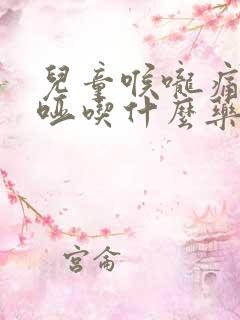 兒童喉嚨痛
啞喫什麼藥
宮侖